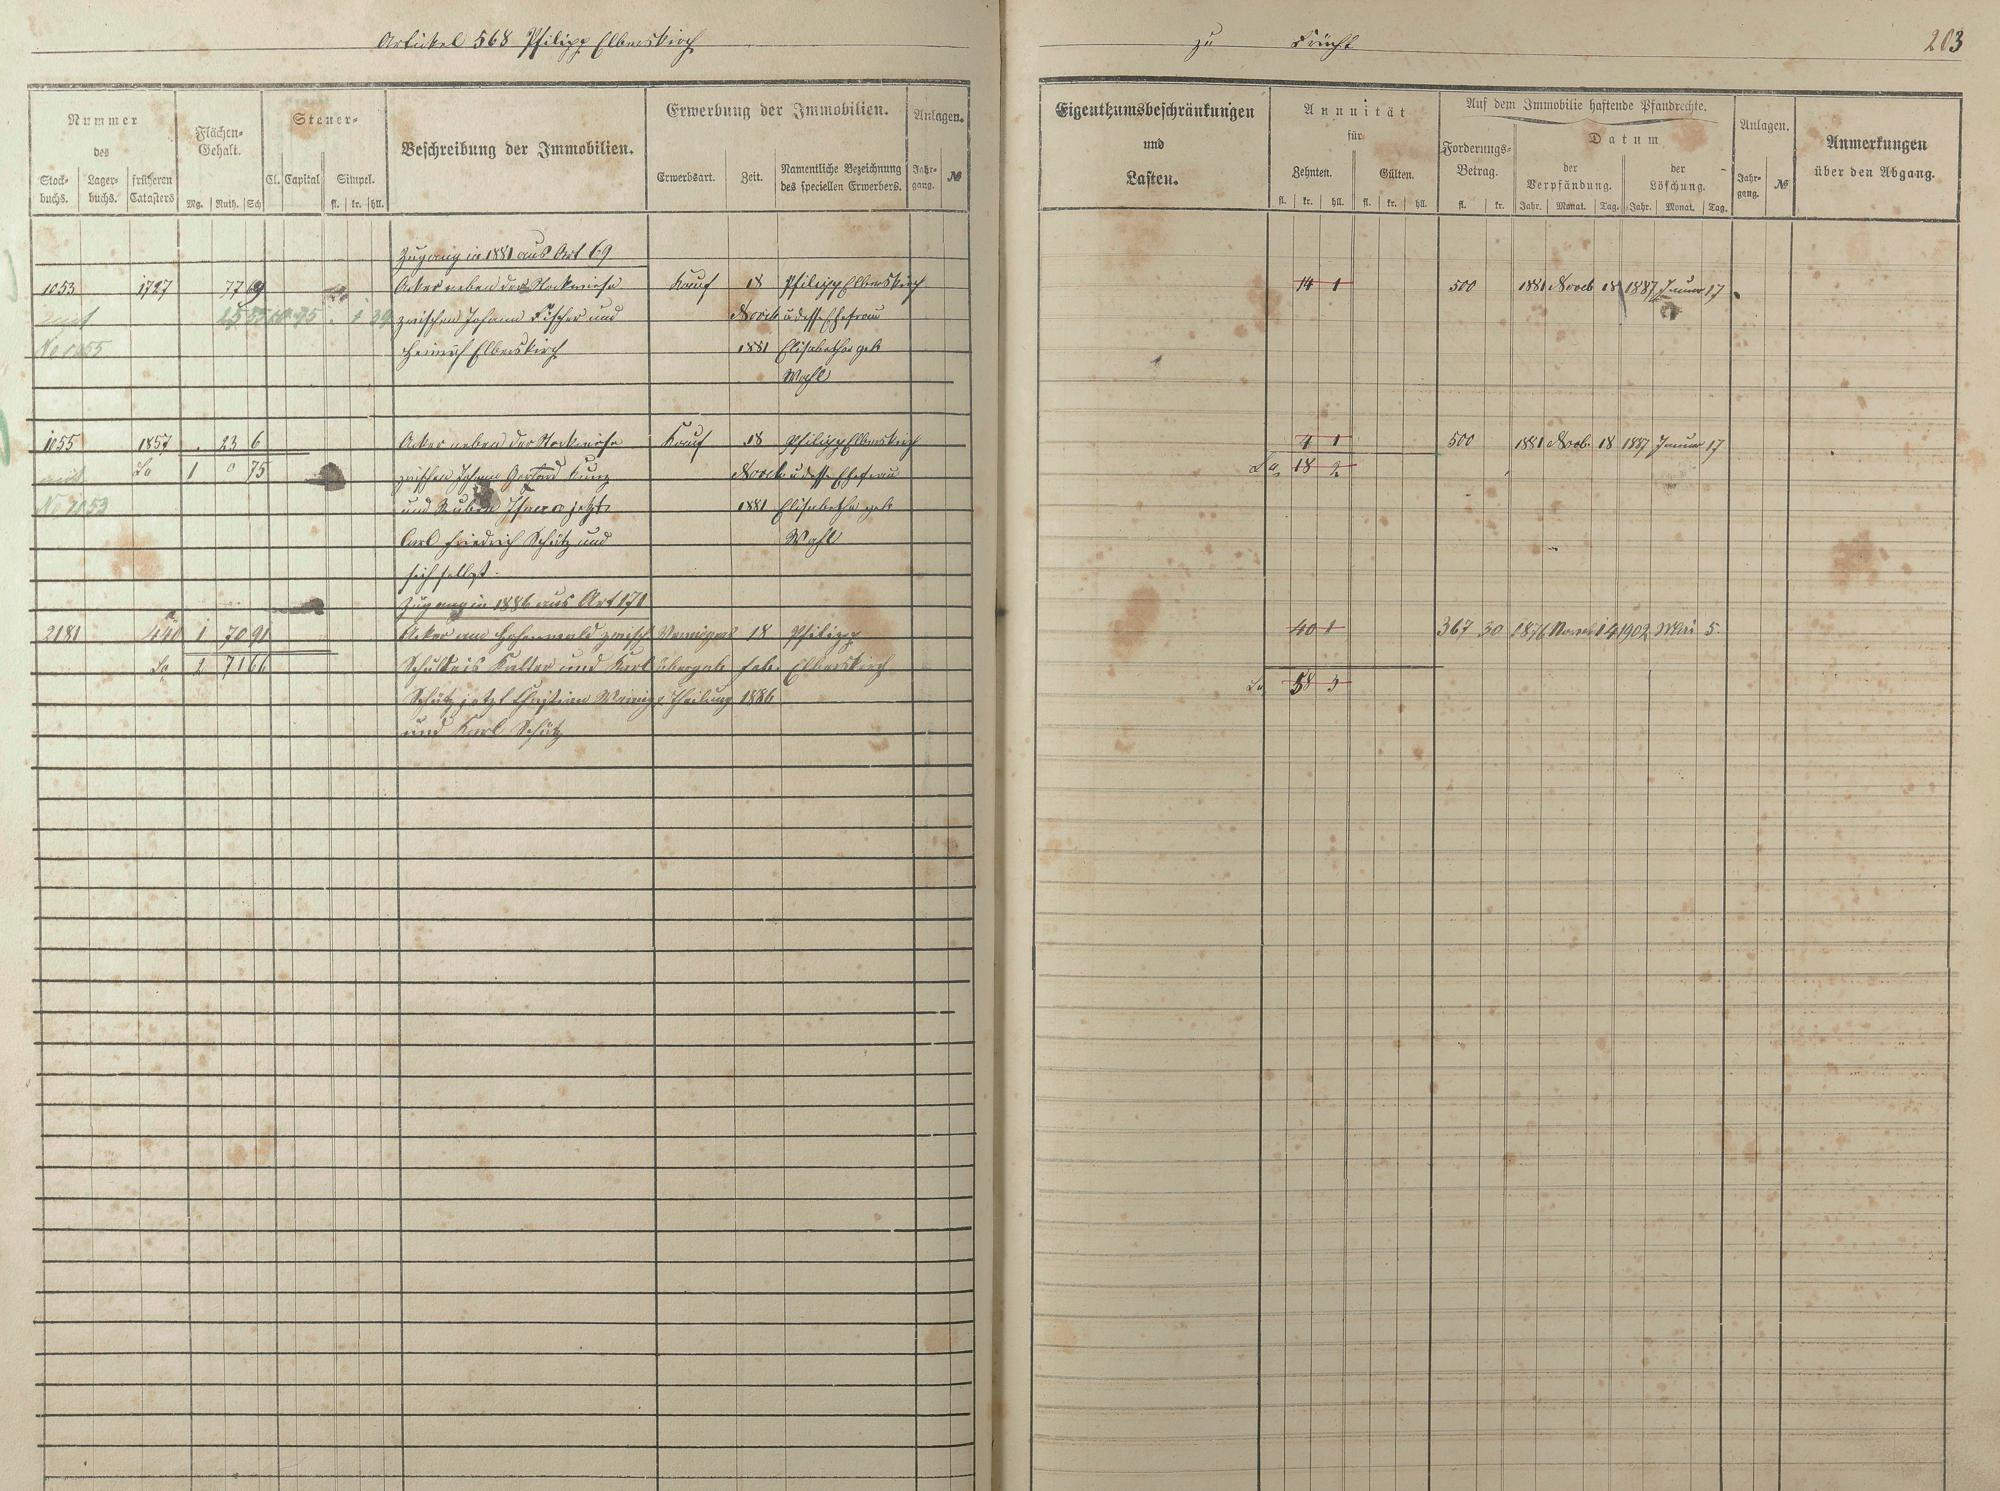 Artickel 568 Philipp Elberskirch
zu Frücht
203
Nummer
des
Stock-
buchs.
Lager-
buchs.
früheren
Catasters
Flächen-
Gehalt.
Mg. Ruth. Sch
Steuer-
Cl. Capital Simpel.
fl. kr. hll.
Beschreibung der Immobilien.
Erwerbung der Immobilien.
Erwerbsart. Zeit.
Namentliche Bezeichnung
des speciellen Erwerbers.
Anlagen.
Jahr-
gang.
№
Eigenthumsbeschränkungen
und
Lasten.
Annuität
für
Zehnten. Gülten.
fl. kr. hll. fl. kr. hll.
Auf dem Immobilie haftende Pfandrechte.
Forderungs-
Betrag.
fl. kr.
Datum
der
Verpfändung.
der
Löschung.
Jahr. Monat. Tag. Jahr. Monat. Tag.
Anlagen.
Jahr-
gang.
№
Anmerkungen
über den Abgang.
Zugang in 1881 aus Art 69
1053 1727 77 69 Acker neben der Stockwiese Kauf 18 Philipp Elberskirch 14 1 500 1881 Novb 18 1887 Januar 17
mit zwischen Johann Fischer und Novb u dessen Ehefrau
No 1055 Heinrich Elberskirch 1881 Elisabetha geb
Wahl
1055 1857 . 23 6 Acker neben der Stockwiese Kauf 18 Philipp Elberskirch 4 1 500 1881 Novb. 18 1887 Januar 17
mit Sa 1 0 75 zwischen Johann Gerhard Kunz Novb u dessen Ehefrau Sa 18 2
No 1053 und jetzt 1881 Elisabetha geb
Carl Friedrich Schütz und Wahl
sich selbst.
Zugang in 1886 aus Art 171
2181 1 70 91 Acker am Hohenwald zwisch. Vermögens 18 Philipp 40 1 367 30 1876 14 1902 Mai 5.
Sa 2 71 66 und Karl übergab Elberskirch
Schütz jetzt Christian Theilung 1886 Sa 58 3
und Karl Schütz